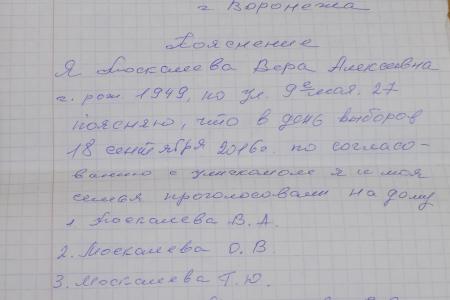 г Воронежа
Пояснение
Я Москалева Вера Алексеевна
г. рож. 1949, по ул. 9е мая. 27
поясняю, что в день выборов
18 сентября 2016г. по согласо-
ванию с уиккомом я и моя
семья проголосовали на дому
1 Москалева В. А.
2. Москалева О. В.
3. Москалева Т. Ю.